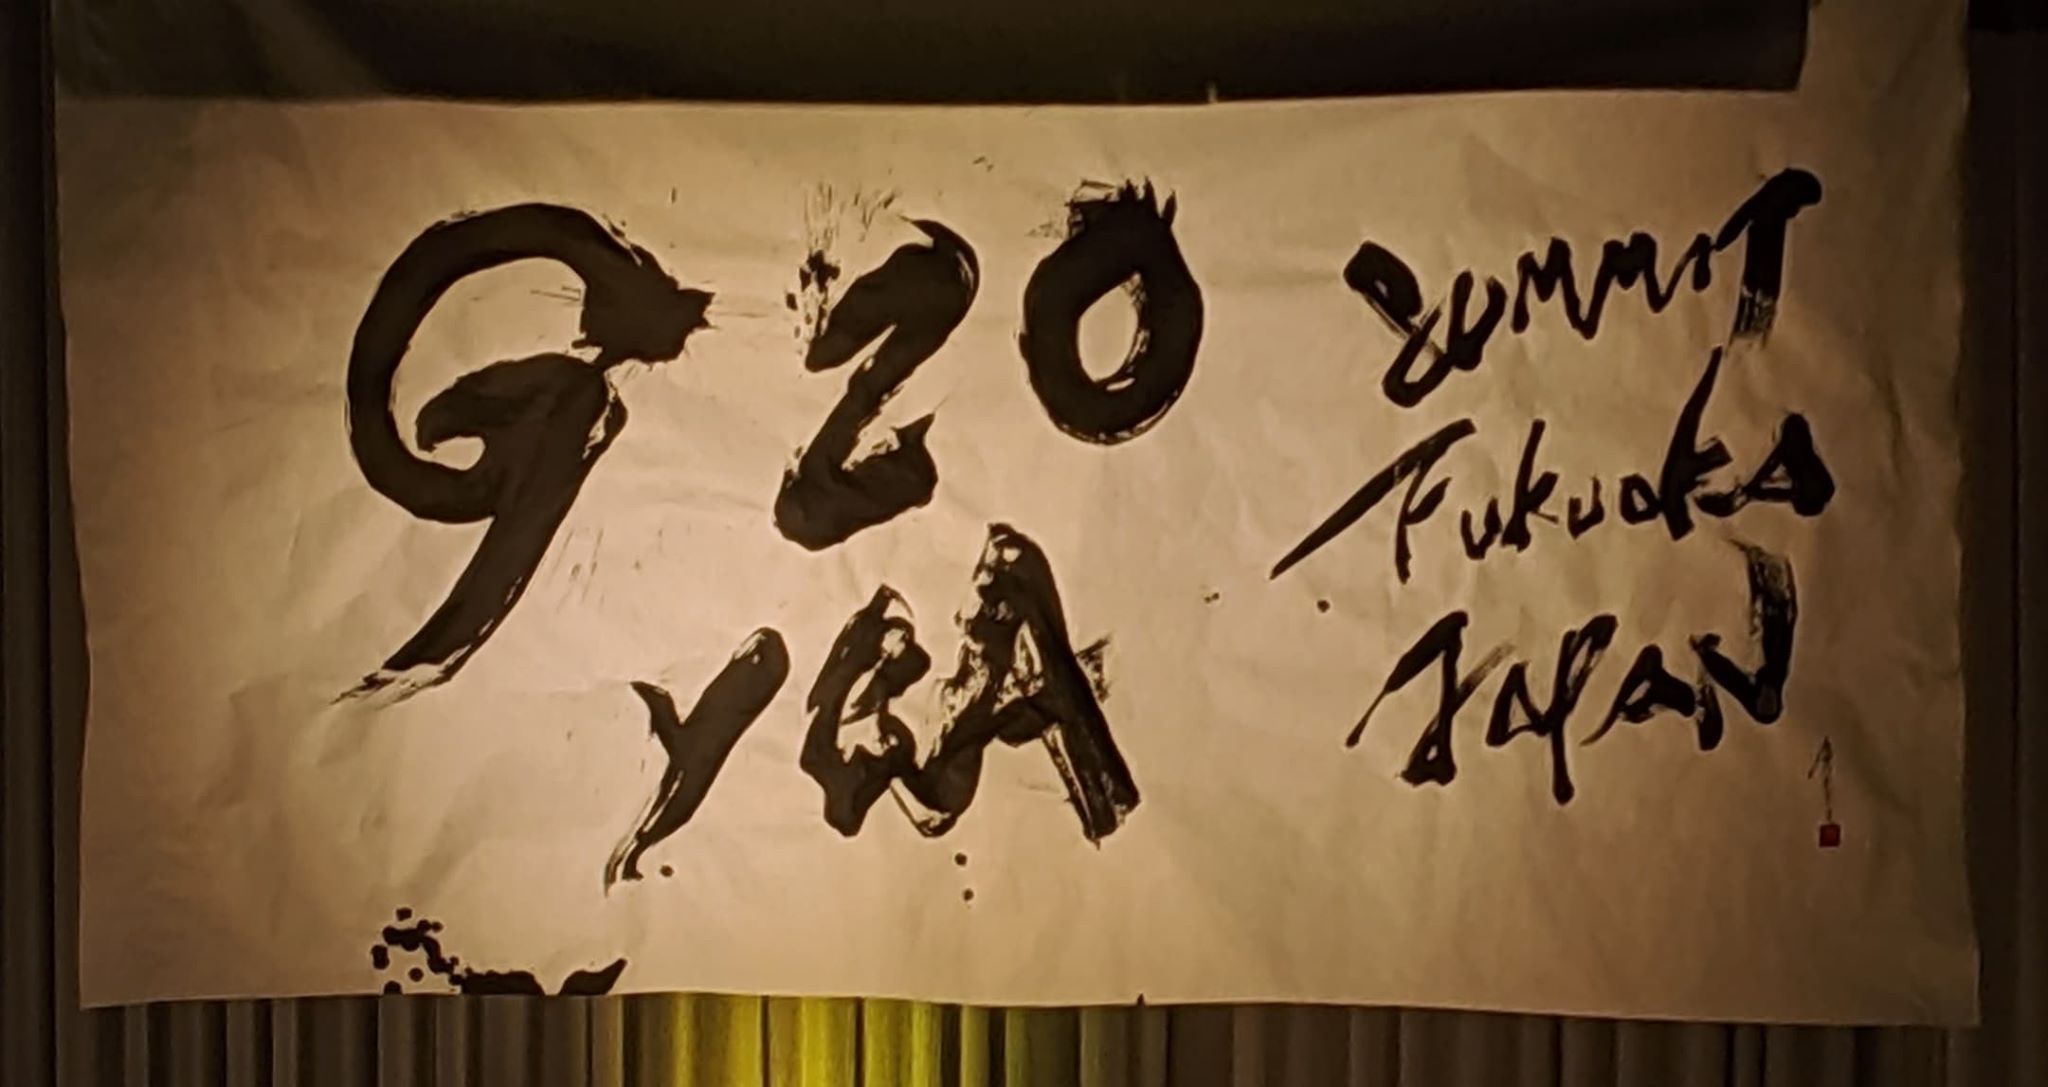 G20
YEA
SUMMIT
Fukuoka
JAPAN